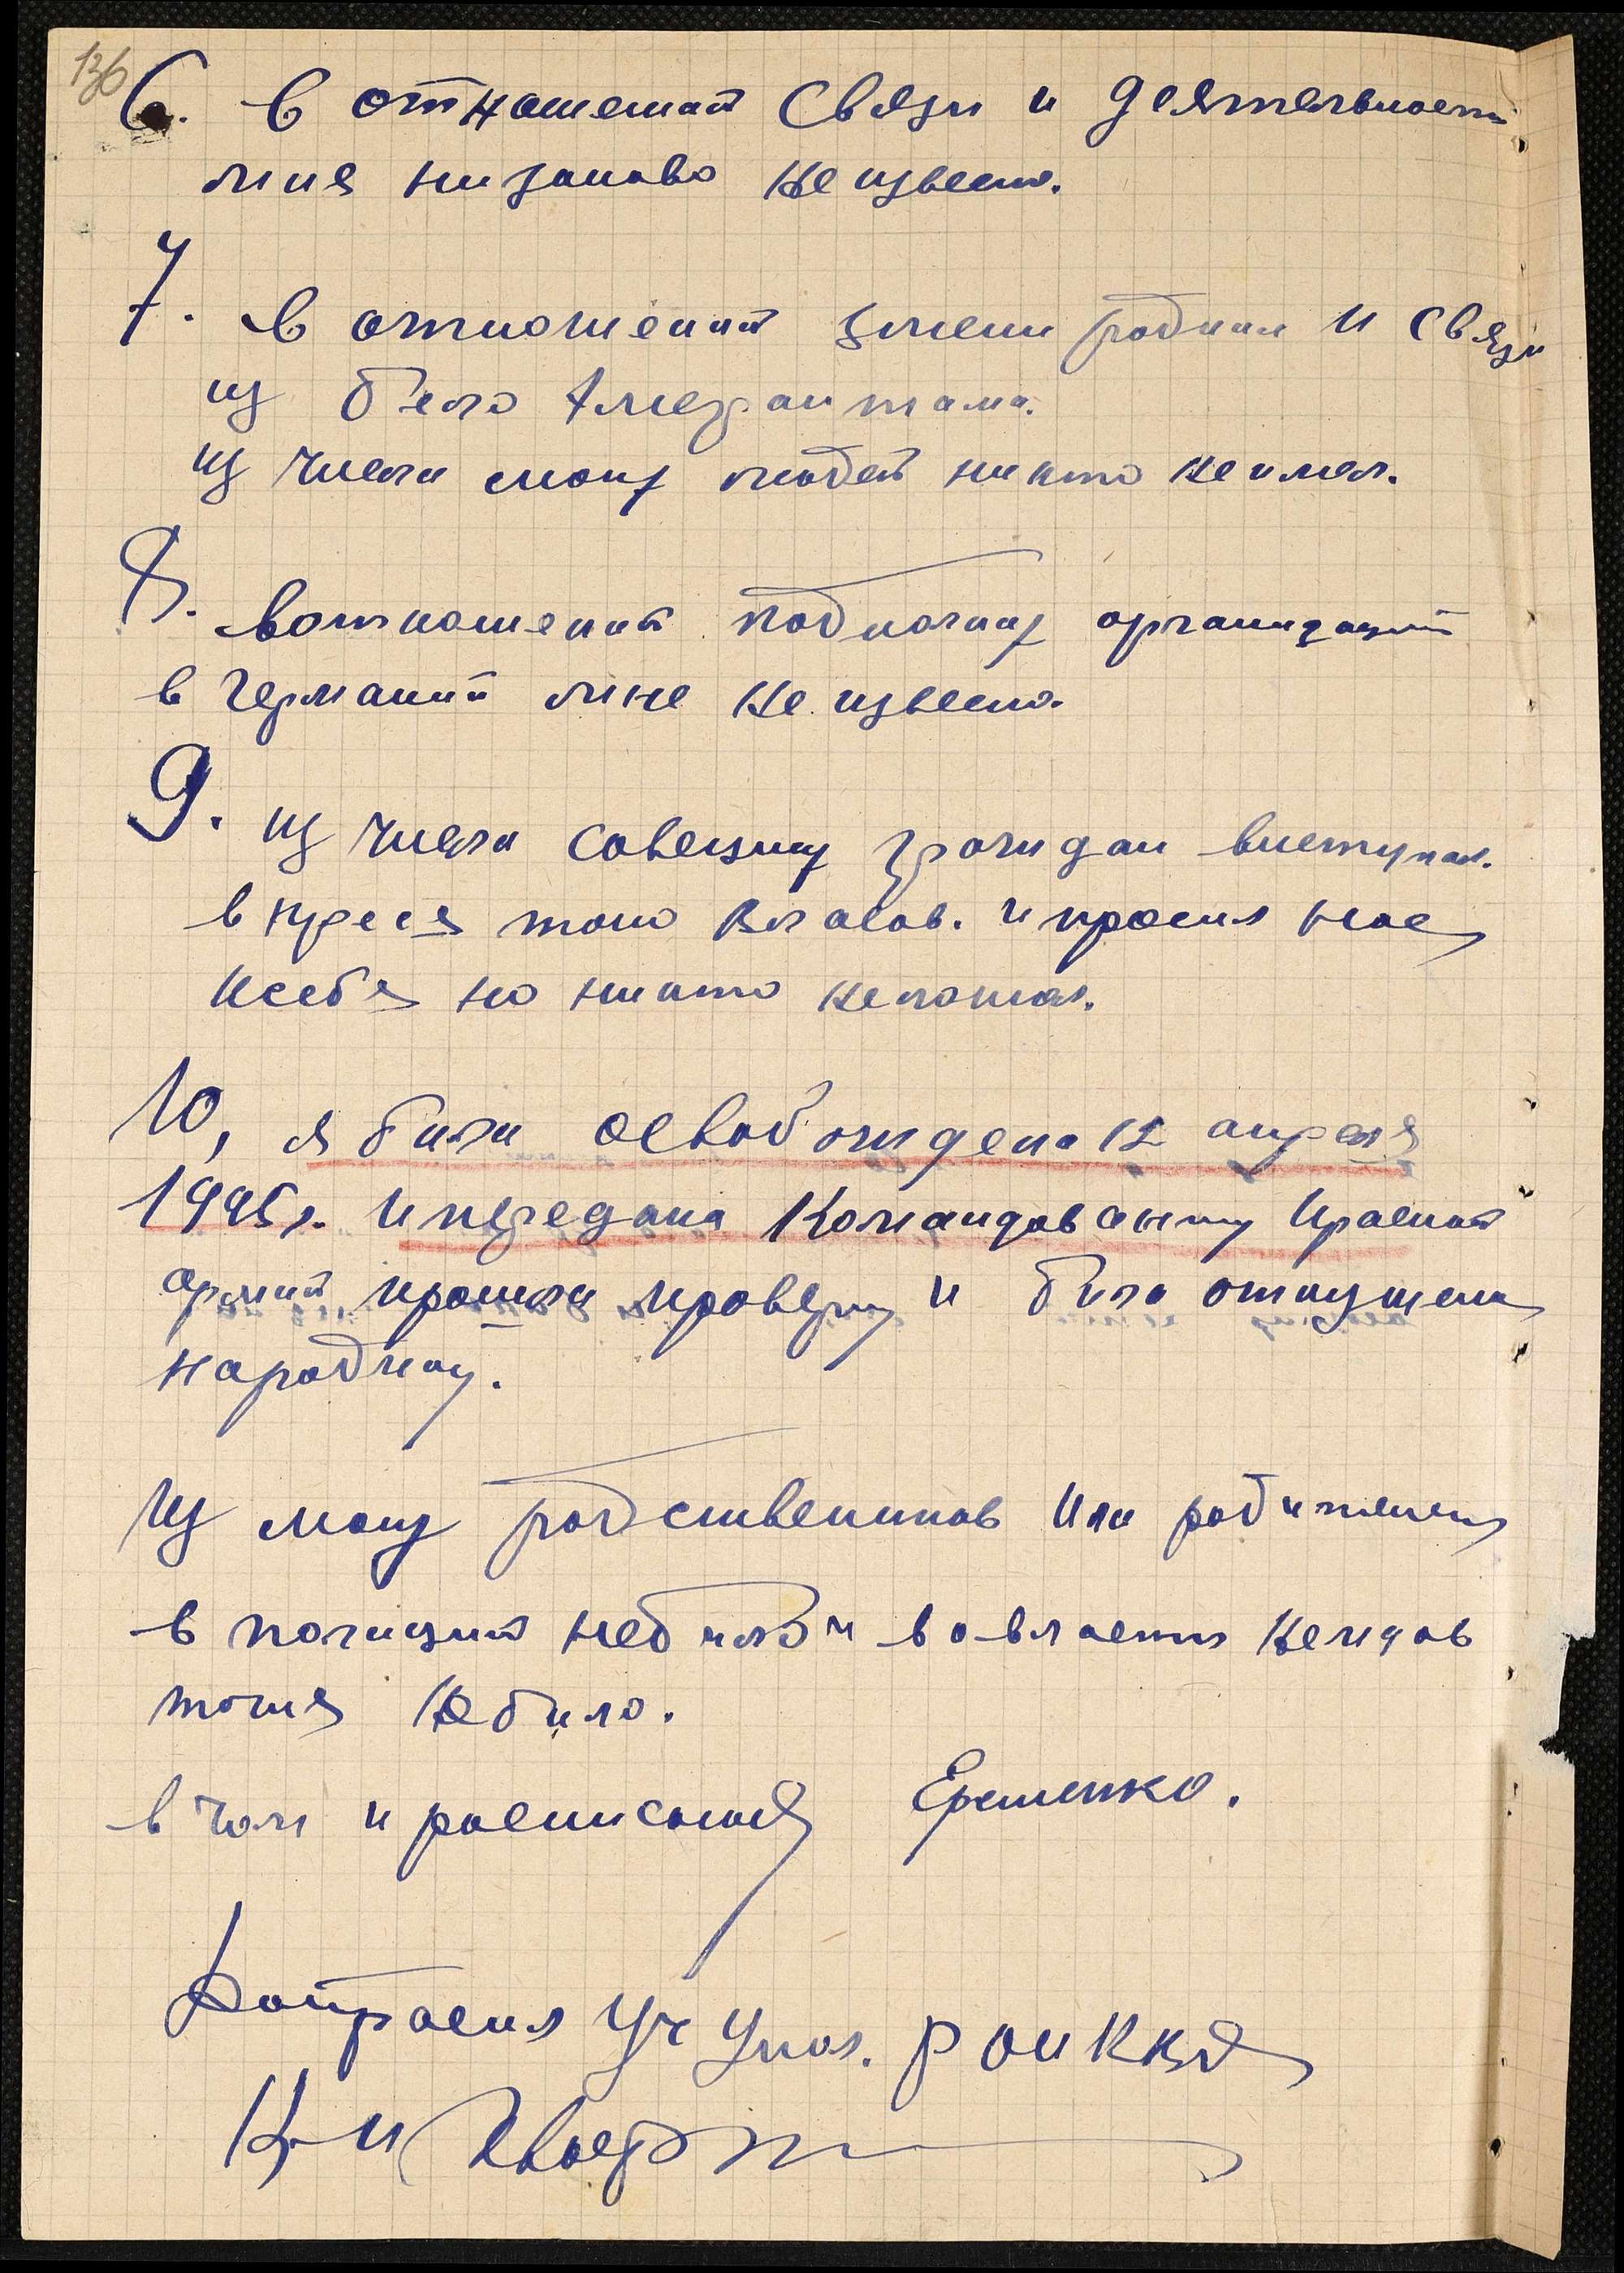 136
6. в отношений Связи и деятельности
мине низаково не извесно.
7. в отношений измени родини и связи
из бело Амегрантами.
из числа моих людей никто не имел.
8. вотношений подполних организаций
в Германий мине не извесно.
9. из числа совецких граждан виступал.
в пресся толко Власов. и просил нас
ксебя но никто непошол.
10, я била освобождена 12 апреля
1945 г. и передана Командованию Красной
армий прошла проверку и била отпущена
народину.
Из моих родствеников или родителей
в полиций небило и вовласти немцов
тоже небило.
в чом и росписалась Еременко.
Допросил Уч Упол. РОМКВД